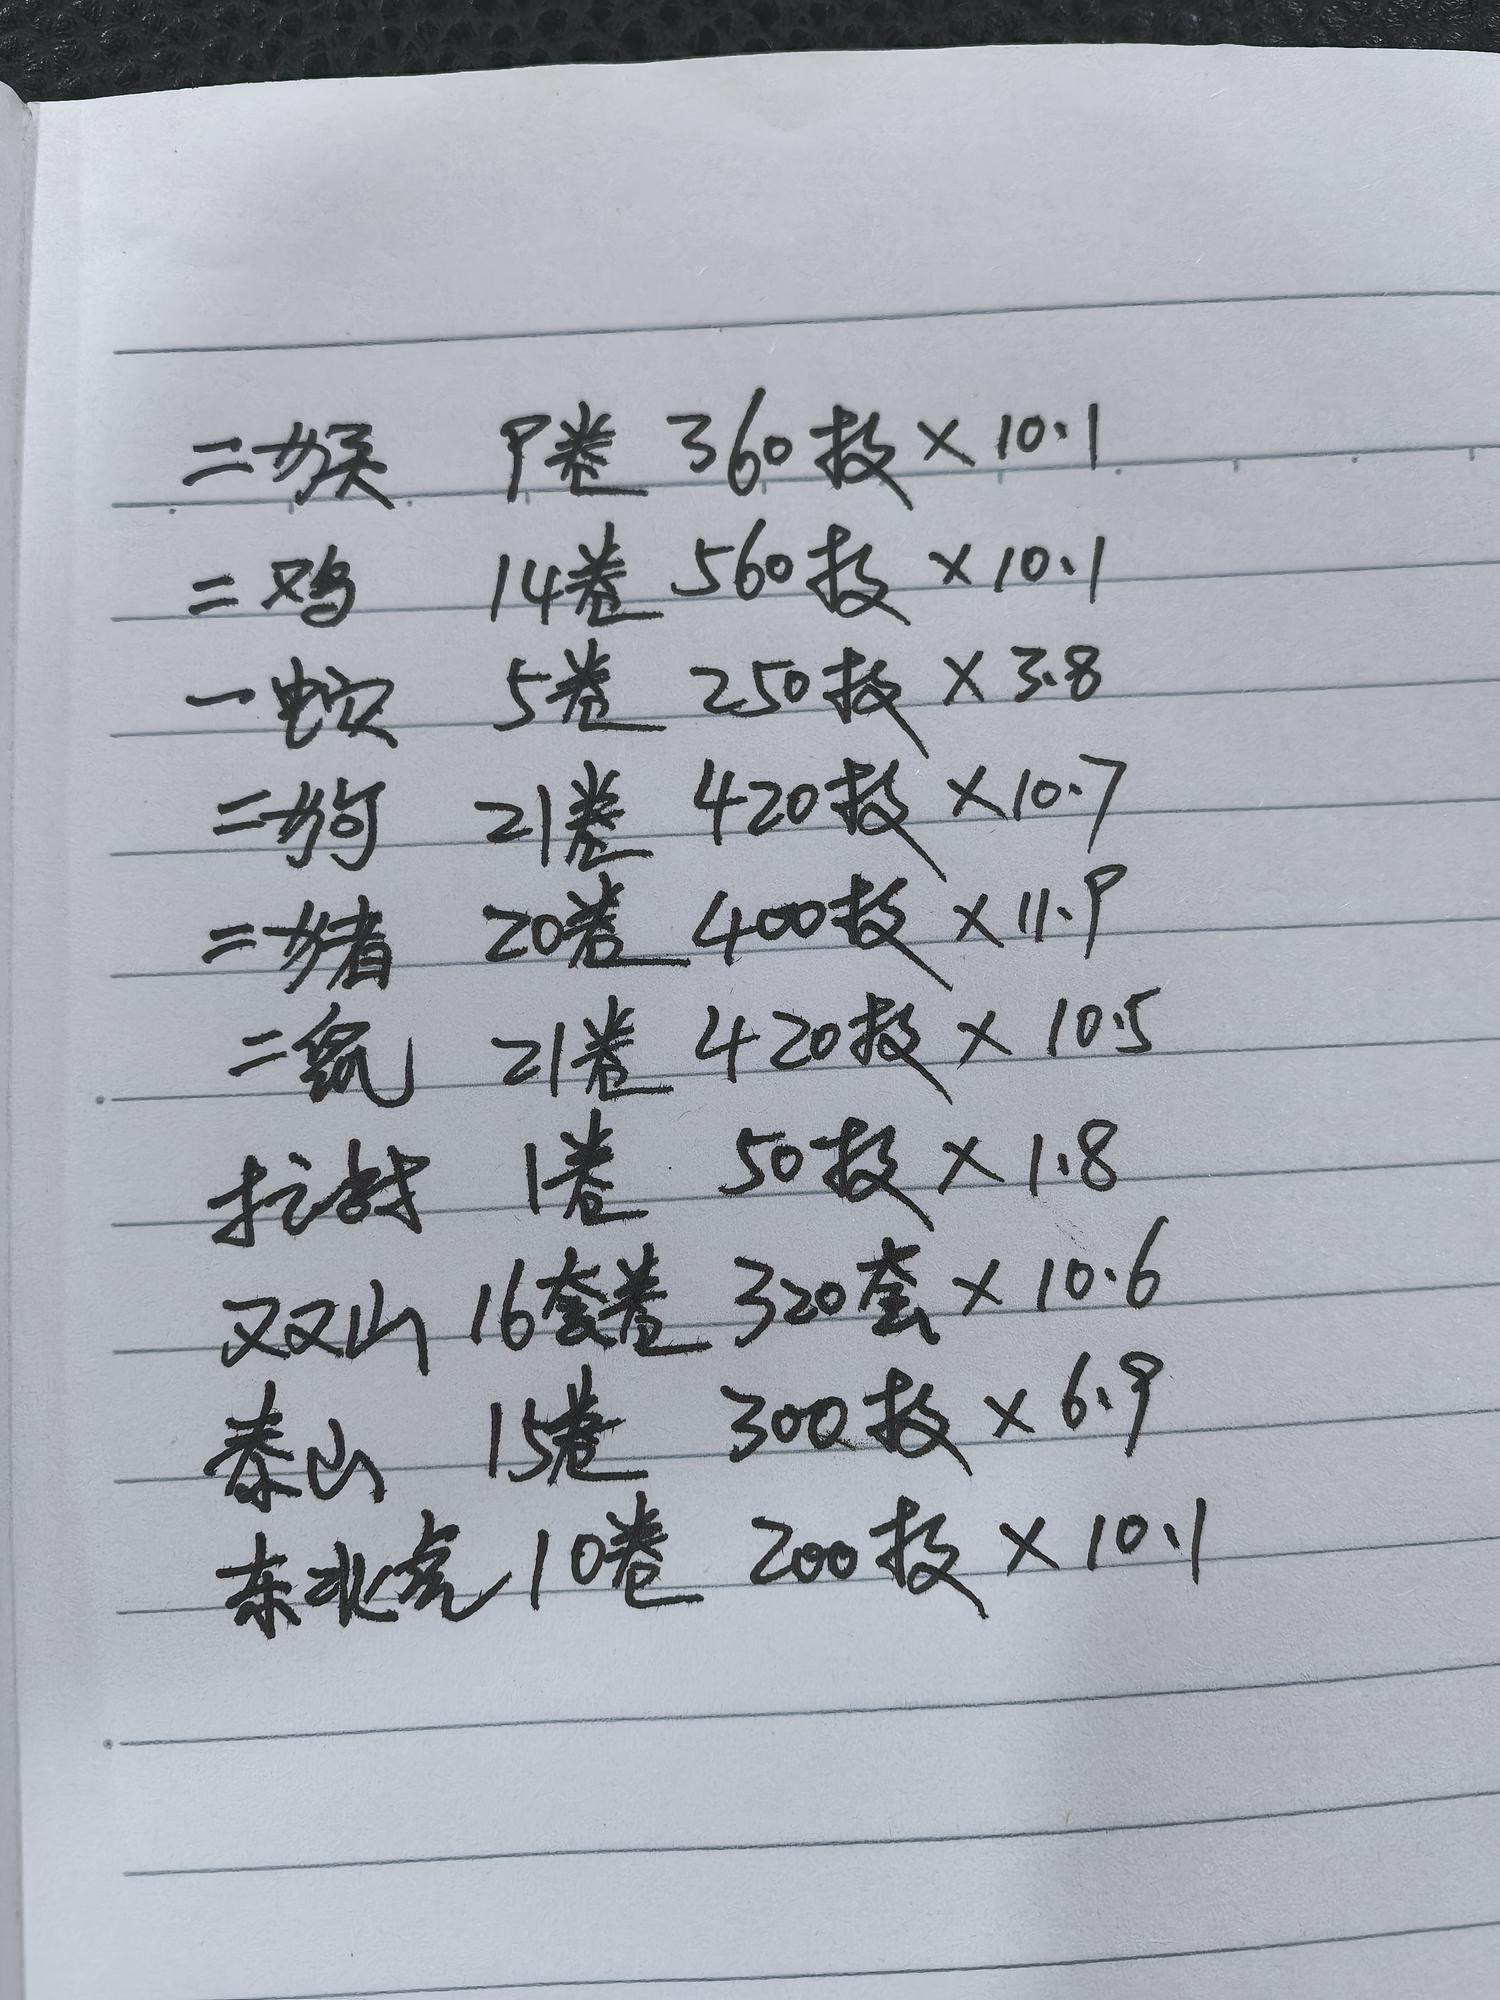 二猴 9卷 360投×10.1
二鸡 14卷 560投×10.1
一蛇 5卷 250投×3.8
二狗 21卷 420投×10.7
二猪 20卷 400投×11.9
二 21卷 420投×10.5
1卷 50投×1.8
双双山 16套卷 320套×10.6
泰山 15卷 300投×6.9
东北虎 10卷 200投×10.1